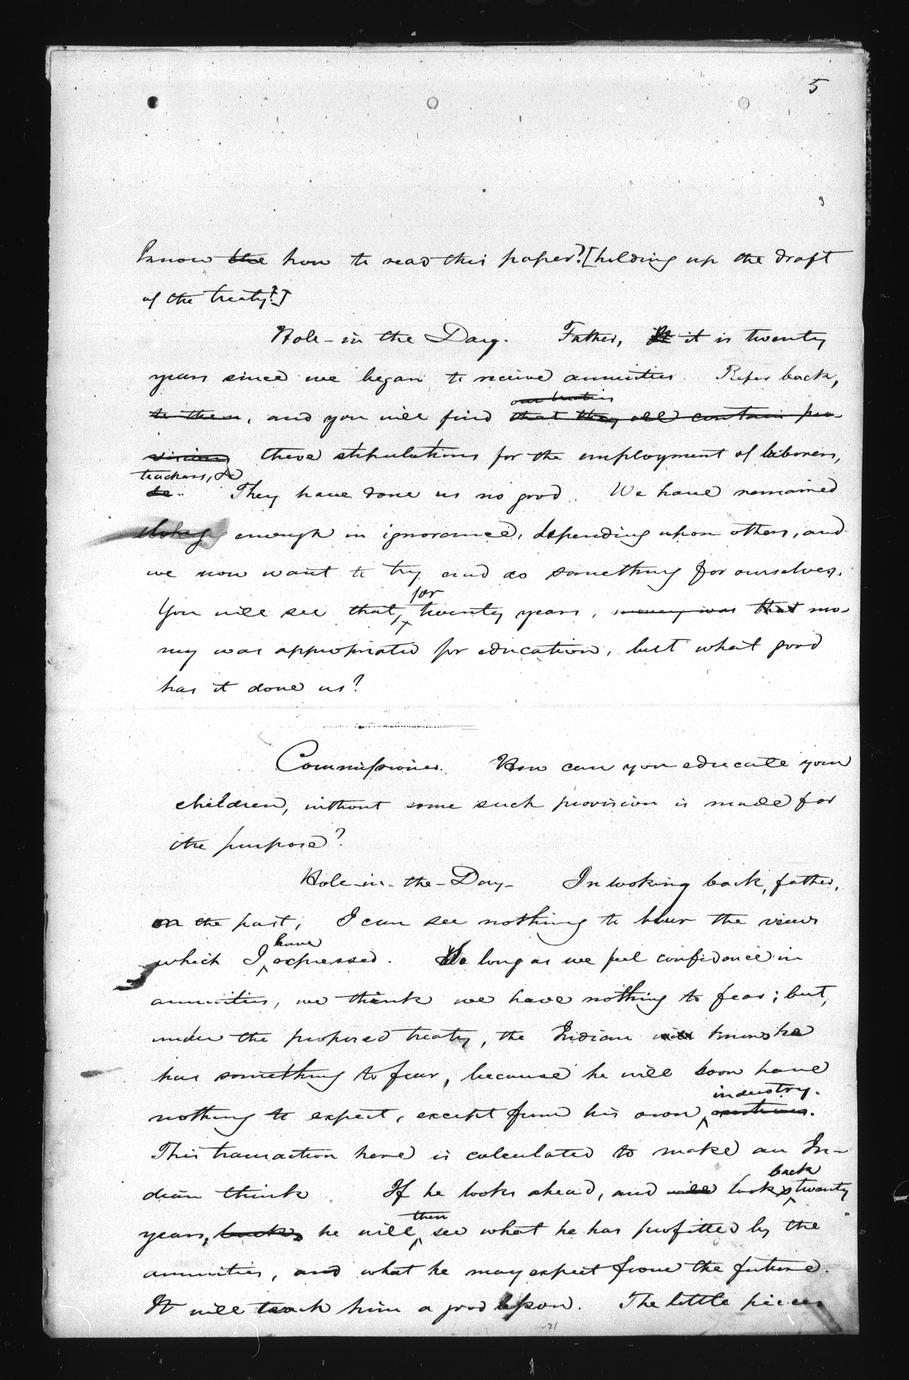 5
know the how to read this paper? [holding up the draft
of the treaty?]
Hole-in the Day. Father, it is twenty
years since we began to receive annuities. Refer back,
our treaties
to them, and you will find that they all contain pro-
visions these stipulations for the employment of laborers,
teachers, &c
&c. They have done us no good. We have remained
enough in ignorance, depending upon others, and
we now want to try and do something for ourselves.
for
You will see that, twenty years, money was that mo-
ney was appropriated for education, but what good
has it done us?
Commissioner. How can you educate your
children, without some such provision is made for
the purpose?
Hole-in-the-Day- In looking back, father,
on the past, I can see nothing to blur the views
have
which I expressed. So long as we feel confidence in
annuities, we think we have nothing to fear; but,
under the proposed treaty, the Indian will knows he
has something to fear, because he will soon have
industry.
nothing to expect, except from his own exertions.
This transaction here is calculated to make an In-
back
dian think If he looks ahead, and will looks twenty
then
years, back, he will see what he has profitted by the
annuities, and what he may expect from the future.
It will teach him a good lesson. The little pieces